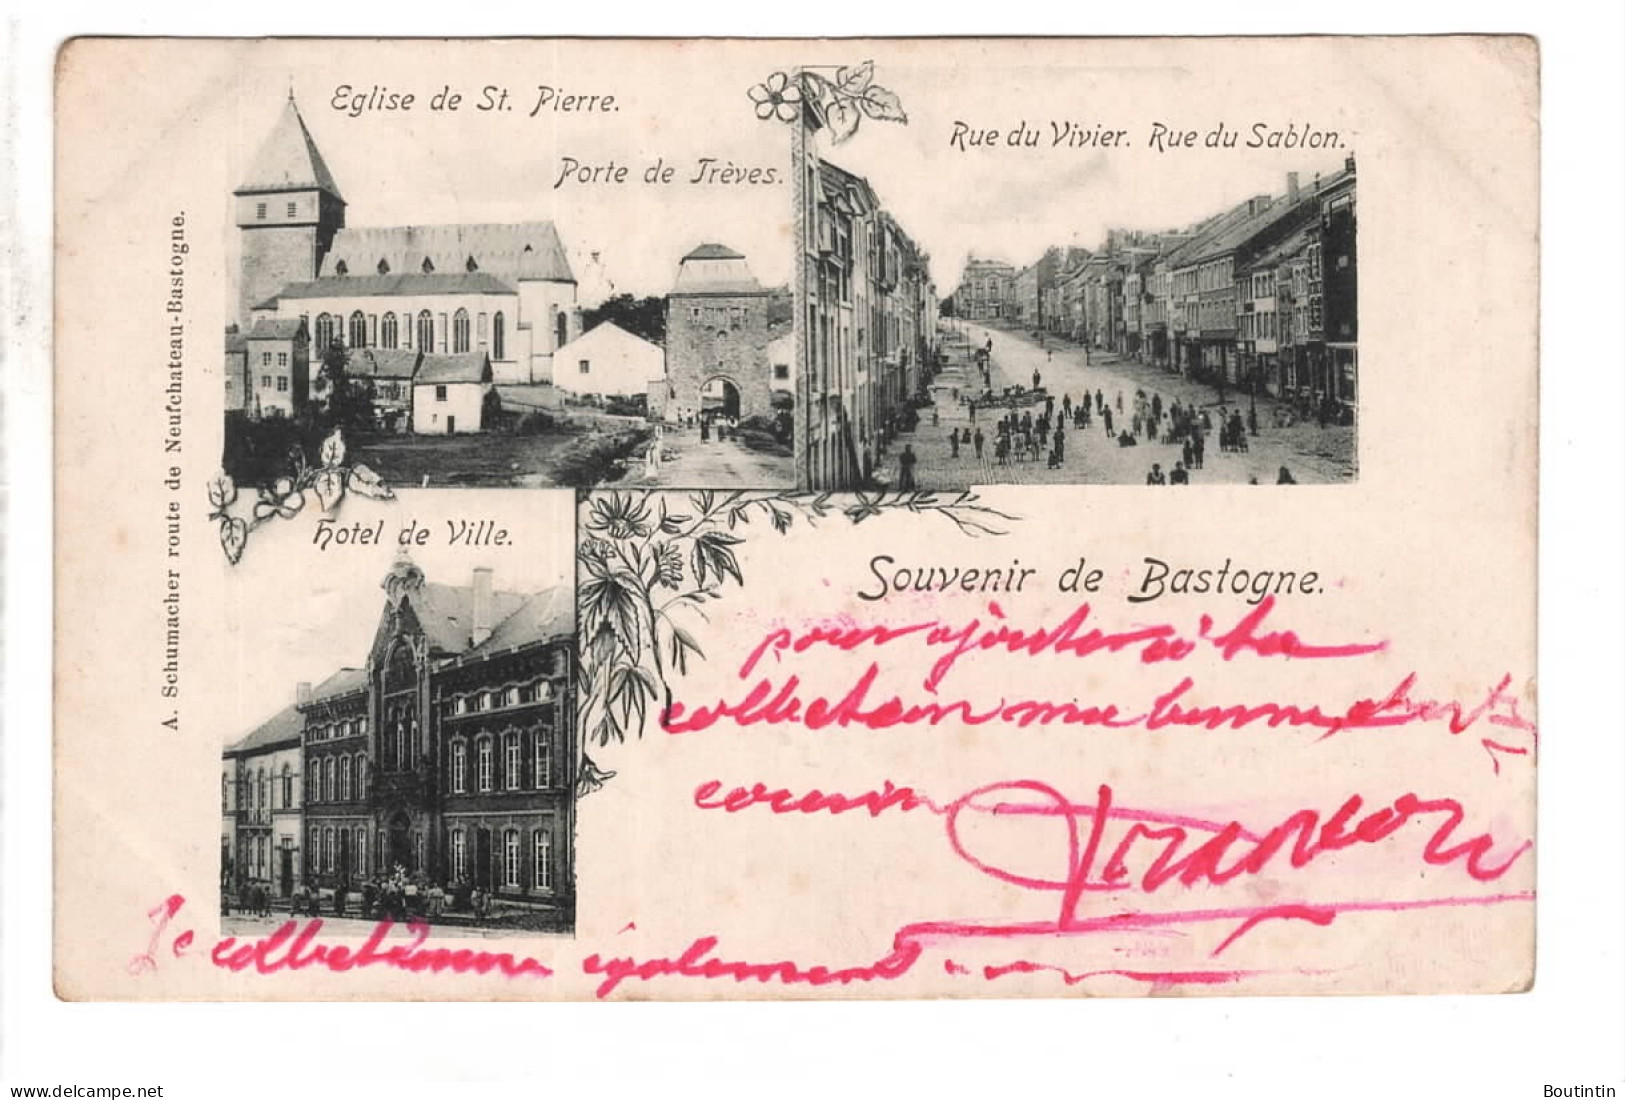 Eglise de St. Pierre.
Porte de Trèves.
Rue du Vivier. Rue du Sablon.
A. Schumacher route de Neufchateau-Bastogne.
Hotel de Ville.
Souvenir de Bastogne.
pour ajouter à ta
collection ma
cousin
Je collectionne également
www.delcampe.net
Boutintin